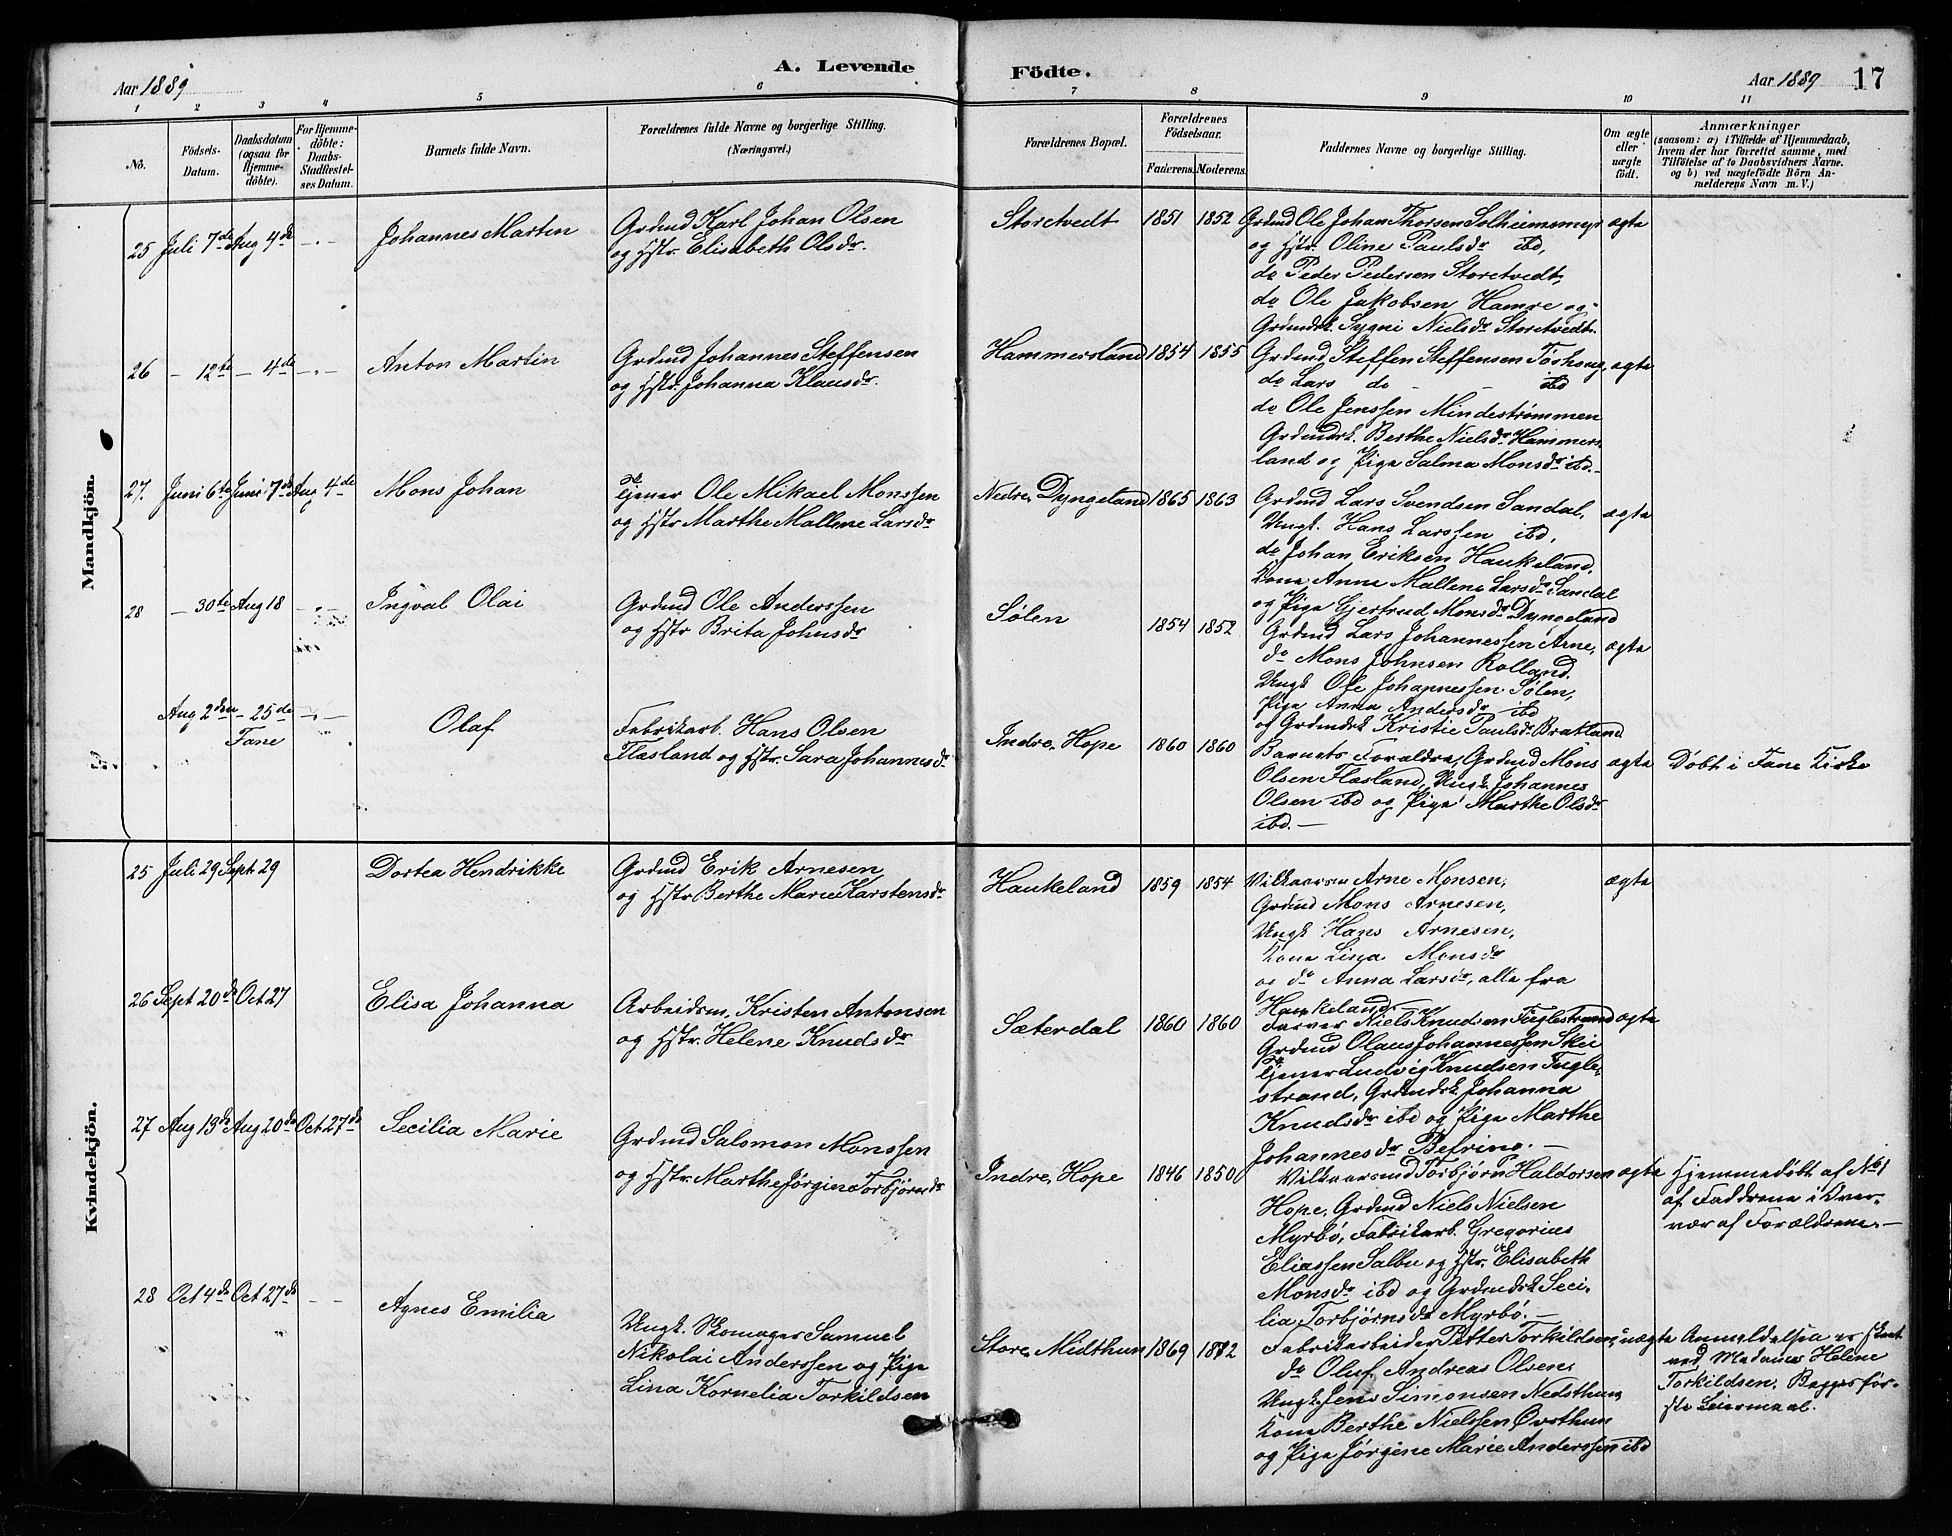 A. Levende Födte.
Aar 1889 Aar 1889 17
1 2 3 4 5 6 7 8 9 10 11
No.
Födsels-
Datum.
Daabsdatum
(ogsaa for
Hjemme-
döbte).
For Hjemme-
döbte:
Daabs-
Stadfestel-
ses Datum.
Barnets fulde Navn.
Forældrenes fulde Navne og borgerlige Stilling.
(Næringsvei.)
Forældrenes Bopæl.
Forældrenes
Födselsaar.
Faderens. Moderens.
Faddernes Navne og borgerlige Stilling.
Om ægte
eller
uægte
födt.
Anmærkninger
(saasom: a) i Tilfælde af Hjemmedaab,
hvem der har forrettet samme, med
Tilföielse af to Daabsvidners Navne.
og b) ved uægtefödte Börn An-
melderens Navn m. V.)
Mandkjön.
25 Juli 7de Aug 4de - . - Johannes Martin
Grdmd Karl Johan Olsen
og Hstr. Elisabeth Olsdr.
Storetvedt 1851 1852
Grdmd Ole Johan Thorsen Solheimsmyr
og Hstr. Oline Paulsdr ibd,
do Peder Pedersen Storetvedt,
do Ole Jakobsen Hamre og
Grdmdsk. Sygni Nielsdr Storetvedt.
ægte
26 - 12te - 4de - . - Anton Martin
Grdmd Johannes Steffensen
og Hstr. Johanna Klausdr.
Hammersland 1854 1855
Grdmd Steffen Steffensen
do Lars do - - ibd
do Ole Jenssen Mindestrømmen
Grdmdsk. Berthe Nielsdr Hammers-
land og Pige Salma Monsdr ibd.-
ægte
27. Juni 6te Juni 7de Aug 4de Mons Johan
Tjener Ole Mikael Monssen
og Hstr Marthe Mallene Larsdr
Nedre Dyngeland 1865 1863
Grdmd Lars Svendsen Sandal,
Ungk. Hans Larssen ibd,
do Johan Eriksen Haukeland,
Kona Anne Mallene Larsdr Sandal
og Pige Gjertrud Monsdr Dyngeland
ægte
28 - 30te Aug 18 - . - Ingval Olai
Grdmd Ole Anderssen
og Hstr Brita Johnsdr
Sølen 1854 1852
Grdmd Lars Johannessen Arne,
do Mons Johnsen Rolland,
Ungk Ole Johannessen Sølen,
Pige Anna Andersdr ibd
og Grdmdsk Kristie Paulsdr Bratland
ægte
Aug 2den - 25de - . - Olaf
Fane
Fabrikarb. Hans Olsen
Flasland og Hstr. Sara Johannesdr
Indre Hope 1860 1860
Barnets Forældre, Grdmd Mons
Olsen Flasland, Ungk Johannes
Olsen ibd og Pige Marthe Olsdr
ibd.-
ægte Døbt i Fane Kirke
Kvindekjön.
25 Juli 29 Sept 29 Dortea Hendrikke
Grdmd Erik Arnesen
og Hstr Berthe Marie Karstensdr
Haukeland 1859 1854
Vilkaarsm Arne Monsen,
Grdmd Mons Arnesen,
Ungk Hans Arnesen,
Kona Lisa Monsdr
og do Anna Larsdr, alle fra
Haukeland
ægte
26 Sept 20de Oct 27 Elisa Johanna
Arbeidsm. Kristen Antonsen
og Hstr. Helene Knudsdr
Sæterdal 1860 1860
Farver Niels Knudsen Fuglestrand
Grdmd Olaus Johannessen Skei
Tjener Ludvig Knudsen Fugle-
strand, Grdmdsk Johanna
Knudsdr ibd og Pige Marthe
Johannesdr Befring.-
ægte
27 Aug 13de Aug 20de Oct 27de Secilia Marie
Grdmd Salomon Monssen
og Hstr. Marthe Jørgine Torbjørnsdr
Indre Hope 1846 1850
Vilkaarsmd Torbjørn Haldorsen
Hope, Grdmd Niels Nielsen
Myrbø, Fabrikarb. Gregorius
Eliassen Salbu og Hstr. Elisabeth
Monsdr ibd og Grdmdsk Seci-
lia Torbjørnsdr Myrbø.-
ægte
Hjemmedøbt af No 1
af Faddrene i Over-
vær af Forældrene.-
28 Oct 4de Oct 27de - - Agnes Emilia
Ungk. Skomager Samuel
Nikolai Anderssen og Pige
Lina Kornelia Torkildsen
Store Midthun 1869 1872
Fabrikarbeider Petter Torkildsen,
do Oluf Andreas Olsen,
Ungk. Jens Simonsen Nedsthun,
Kona Berthe Nielssen Øvsthun
og Pige Jørgine Marie Anderssen ibd
uægte
Anmeldelsen er skeet
ved Madame Helene
Torkildsen. Begges før-
ste Leiermaal.